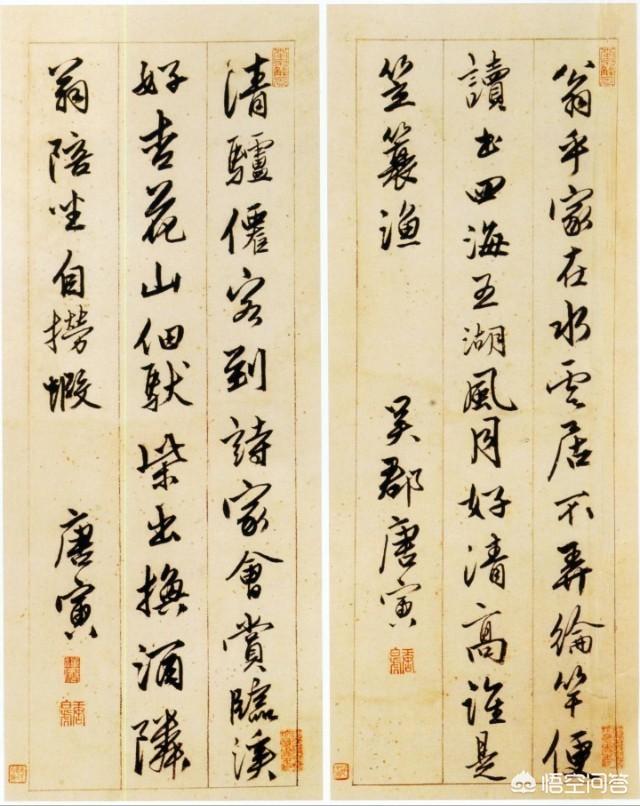 翁乎家在水雲居不弄綸竿便
讀書四海五湖風月好清高誰是
笠簑漁 吳郡唐寅
清驢僊客到詩家會賞臨溪
好杏花山佃馱柴出換酒隣
翁陪坐自撈蝦 唐寅
悟空问答